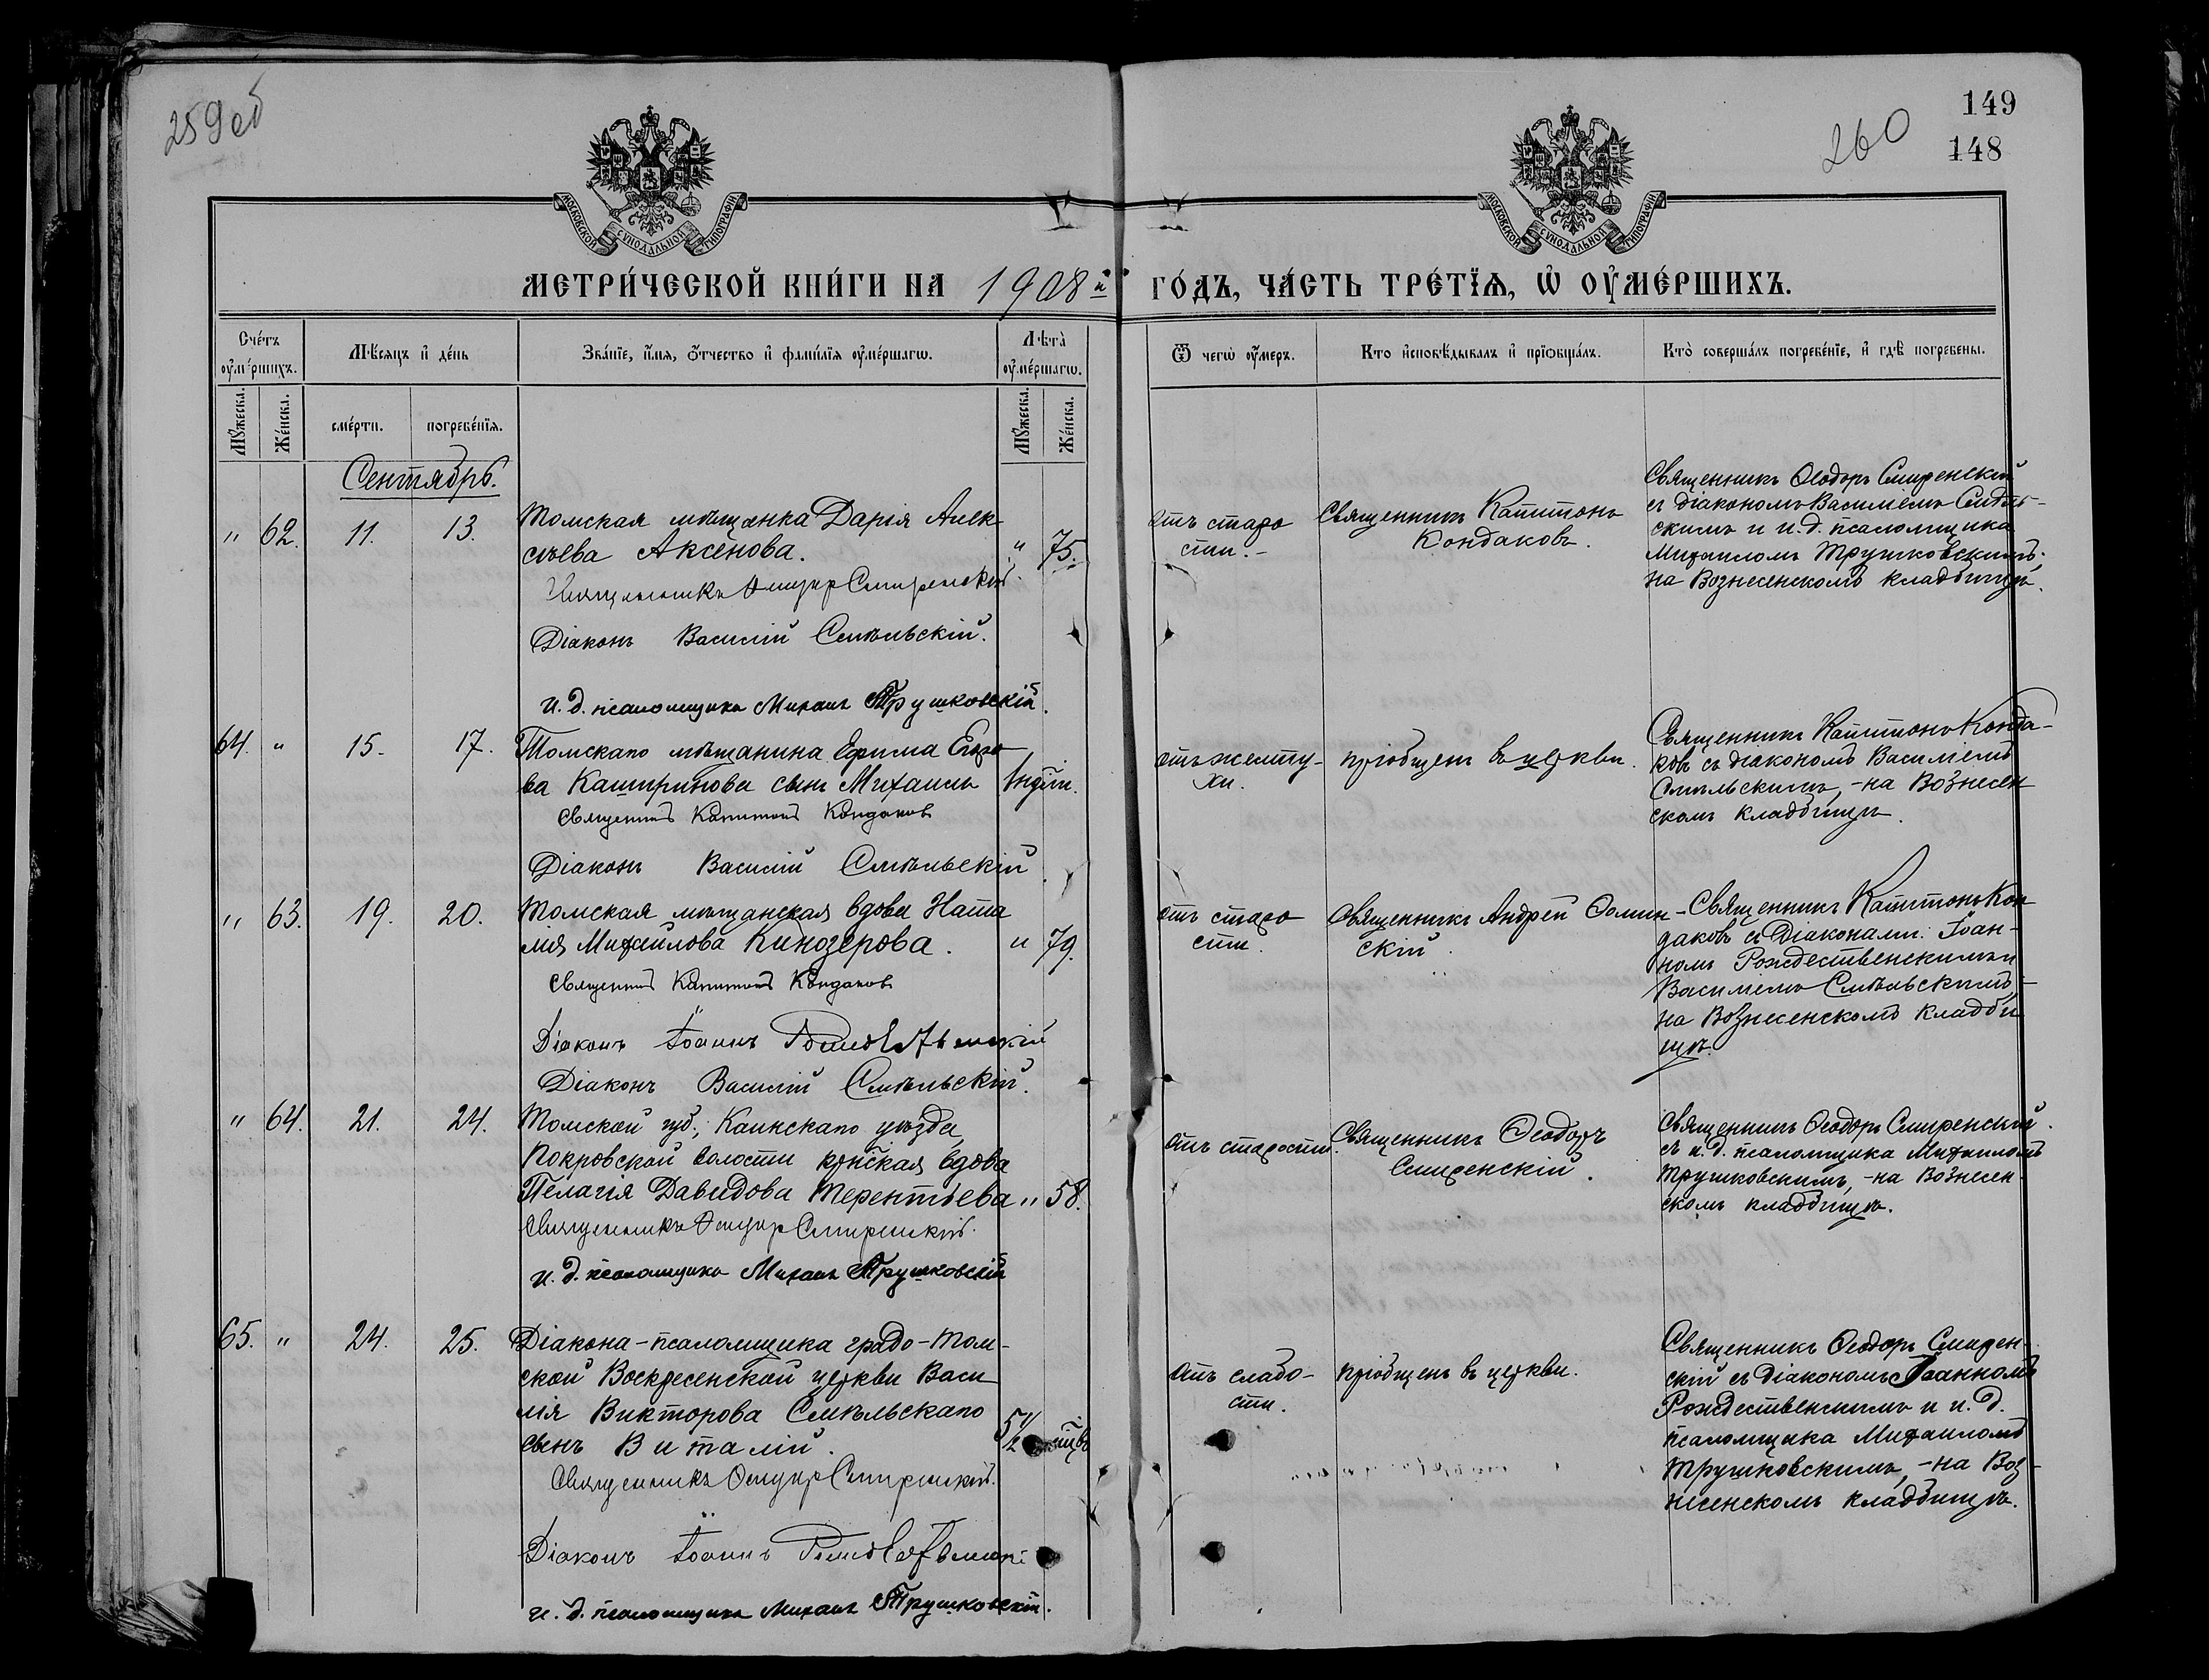 259об
149
260
148
МОСКОВСКОЙ СѴНОДАЛЬНОЙ ТИПОГРАФІИ
МОСКОВСКОЙ СѴНОДАЛЬНОЙ ТИПОГРАФІИ
МЕТРИ́ЧЕСКОЙ КНИ́ГИ НА 1908й ГО́ДЪ, ЧА́СТЬ ТРЕ́ТЇѦ, Ѡ҆ ОУ҆МЕ́РШИХЪ.
Сче́тъ оу҆ме́ршихъ.
Мѣ́сяцъ и҆ де́нь
Зва́нїе, и҆́мя, ѻ҆́тчество и҆ фами́лїя оу҆ме́ршагѡ.
Лѣ́та̀ оу҆ме́ршагѡ.
Ѿ чегѡ̀ оу҆́меръ.
Кто̀ и҆сповѣ́дывалъ и҆ прїѡбща́лъ.
Кто̀ соверша́лъ погребе́нїе, и҆ гдѣ̀ погребены.
Мꙋ́жеска.
Же́нска.
сме́рти.
погребе́нїя.
Мꙋ́жеска.
Же́нска.
Сентябрь.
" 62. 11. 13.
Томская мѣщанка Дарія Алек-
сѣева Аксенова.
" 75.
Священникъ Ѳеодоръ Смиренскій.
Діаконъ Василій Смѣльскій.
и. д. псаломщика Михаилъ Трушковскій.
отъ старо
сти. -
Священникъ Капитонъ
Кондаковъ.
Священникъ Ѳеодоръ Смиренскій
съ діакономъ Василіемъ Смѣль-
скимъ и и. д. псаломщика
Михаиломъ Трушковскимъ;
на Вознесенскомъ кладбищѣ.
64. " 15. 17.
Томскаго мѣщанина Ефима Егоро
ва Каширинова сынъ Михаилъ
Священникъ Капитонъ Кондаковъ
Діаконъ Василій Смѣльскій.
отъ желту-
хи.
пріобщенъ въ церкви.
Священникъ Капитонъ Конда-
ковъ съ діакономъ Василіемъ
Смѣльскимъ, - на Вознесен
скомъ кладбищѣ.
" 63. 19. 20.
Томская мѣщанская вдова Ната
лія Михайлова Кинозерова.
" 79.
Священникъ Капитонъ Кондаковъ
Діаконъ Іоаннъ Рождественскій
Діаконъ Василій Смѣльскій.
отъ старо
сти.
Священникъ Андрей Ѳомин-
скій.
Священникъ Капитонъ Кон
даковъ съ Діаконами: Іоан-
номъ Рождественскимъ и
Василіемъ Смѣльскимъ, -
на Вознесенскомъ кладби
щѣ.
" 64. 21. 24.
Томской губ., Каинскаго уѣзда,
Покровской волости кр-нская вдова
Пелагія Давидова Терентьева " 58.
Священникъ Ѳеодоръ Смиренскій.
и. д. псаломщика Михаилъ Трушковскій
отъ старости.
Священникъ Ѳеодоръ
Смиренскій.
Священникъ Ѳеодоръ Смиренскій
съ и. д. псаломщика Михаиломъ
Трушковскимъ, - на Вознесен-
скомъ кладбищѣ.
65. " 24. 25.
Діакона-псаломщика градо-Том-
ской Воскресенской церкви Васи
лія Викторова Смѣльскаго
сынъ Виталій.
5 1/2
Священникъ Ѳеодоръ Смиренскій.
Діаконъ Іоаннъ Рождественскій
и. д. псаломщика Михаилъ Трушковскій.
отъ слабо-
сти.
пріобщенъ въ церкви.
Священникъ Ѳеодоръ Смирен-
скій съ діакономъ Іоанномъ
Рождественскимъ и и. д.
псаломщика Михаиломъ
Трушковскимъ, - на Воз-
несенскомъ кладбищѣ.